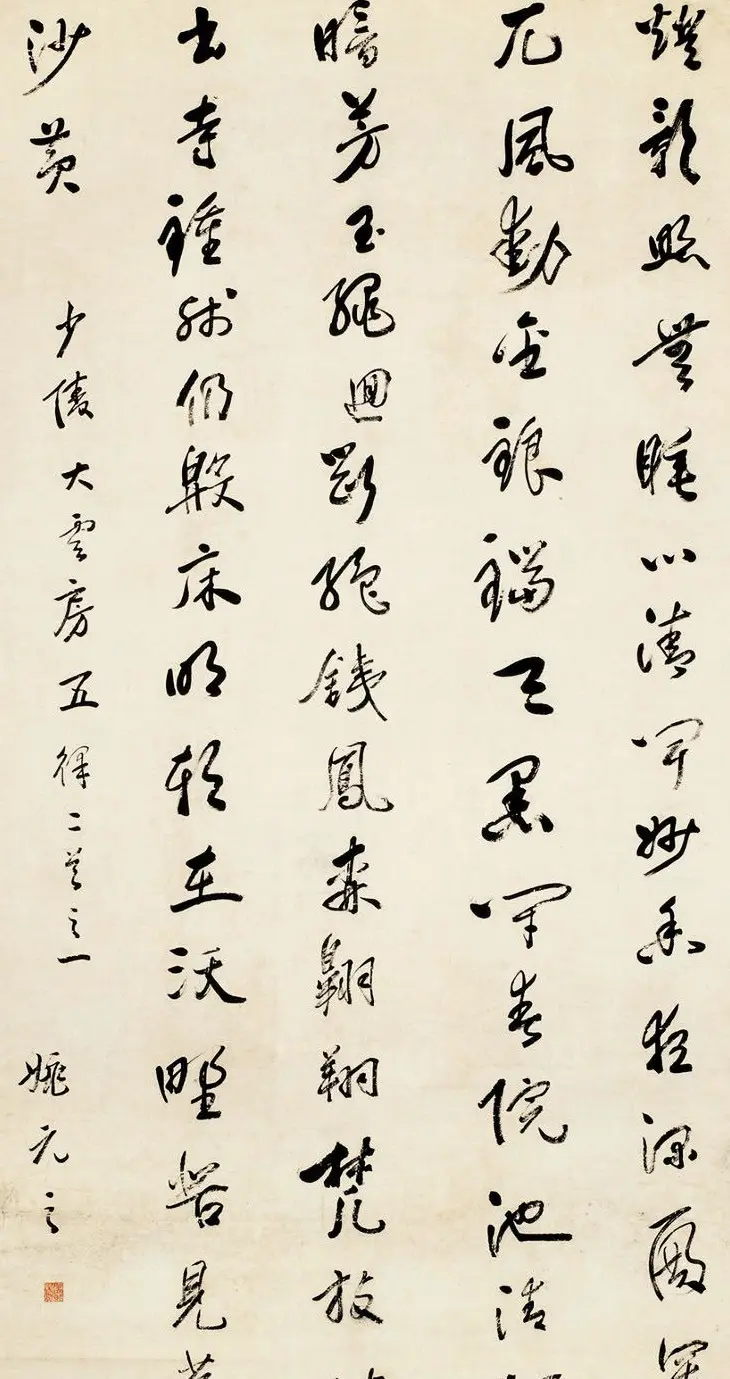 燈影照無睡心清聞妙香夜深殿突
兀風動金鋃鐺天黑閉春院池清
暗芳玉繩迴斷絕鐵鳳森翱翔梵放
出寺鐘殘仍殷床明朝在沃野苦見
沙黃
少陵大雲房五律二首之一
姚元之